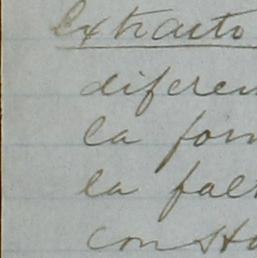 Extracto
diferen
la for
la fal
consta